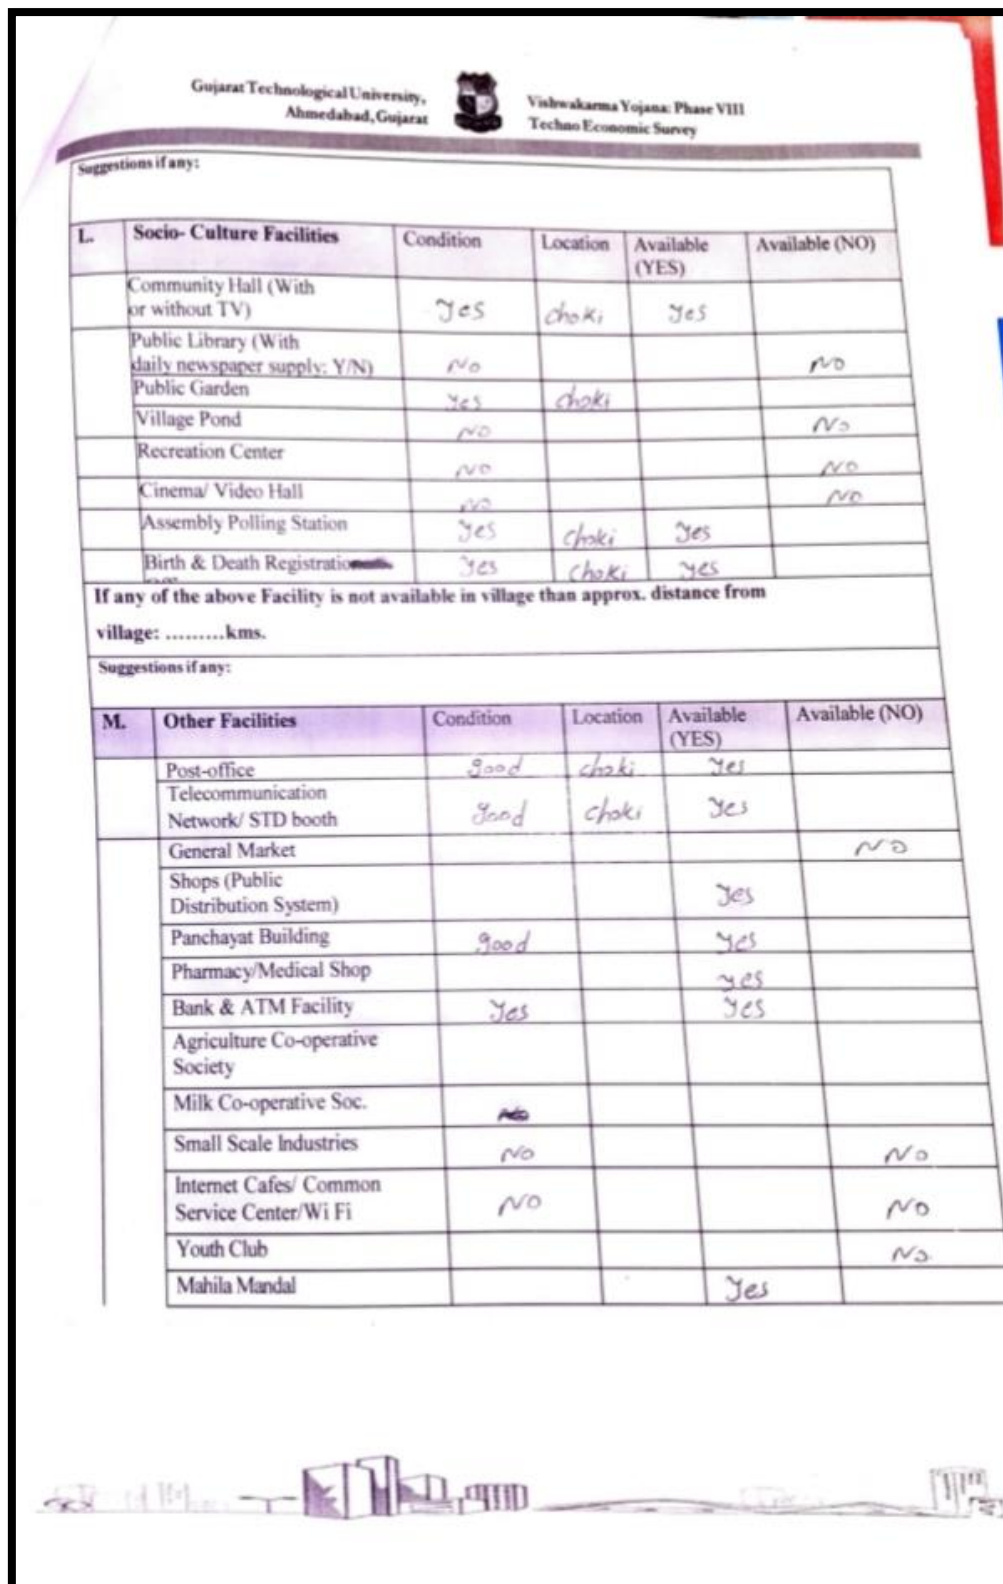 Gujarat Technological University,
Ahmedabad, Gujarat
Vishwakarma Yojana: Phase VIII
Techno Economic Survey
Suggestions if any:
L. Socio- Culture Facilities Condition Location Available (YES) Available (NO)
Community Hall (With
or without TV) Yes choki Yes
Public Library (With
daily newspaper supply: Y/N) No NO
Public Garden Yes choki
Village Pond NO No
Recreation Center NO NO
Cinema/ Video Hall NO NO
Assembly Polling Station Yes choki Yes
Birth & Death Registration Yes choki Yes
If any of the above Facility is not available in village than approx. distance from
village: .........kms.
Suggestions if any:
M. Other Facilities Condition Location Available (YES) Available (NO)
Post-office good choki Yes
Telecommunication
Network/ STD booth good choki Yes
General Market NO
Shops (Public
Distribution System) Yes
Panchayat Building good Yes
Pharmacy/Medical Shop Yes
Bank & ATM Facility Yes Yes
Agriculture Co-operative
Society
Milk Co-operative Soc.
Small Scale Industries NO No
Internet Cafes/ Common
Service Center/Wi Fi NO No
Youth Club No
Mahila Mandal Yes